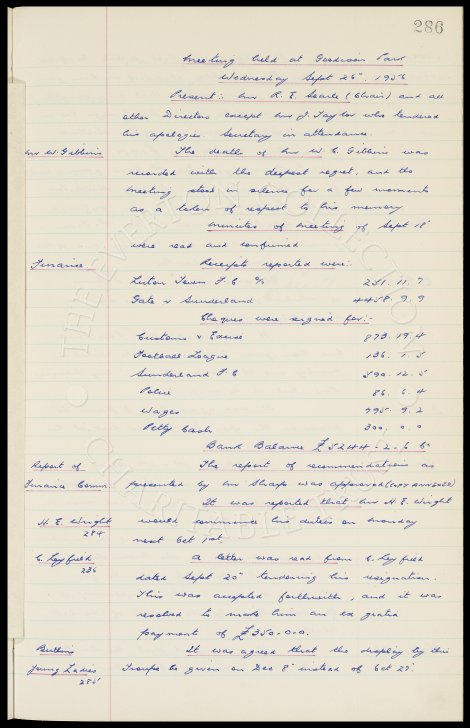 286
Meeting held at Goodison Park
Wednesday Sept 26th, 1956
Present:- Mr R. E. Searle (Chair) and all
other Directors except Mr J. Taylor who tendered
his apologies. Secretary in attendance.
Mr W. Gibbins The death of Mr W. C. Gibbins was
recorded with the deepest regret, and the
meeting stood in silence for a few moments
as a token of respect to his memory
Minutes of meeting of Sept 18th
were read and confirmed
Finance. Receipts reported were:-
Luton Town F.C. 251. 11. 7
Gate v Sunderland 4458. 9. 9
Cheques were signed for:-
Customs & Excise 873. 19. 4
Football League 136. 1. 5
Sunderland F.C. 890. 12. 5
Police 86. 6. 4
Wages 995. 9. 2
Petty Cash 300. 0. 0
Bank Balance £5244-2-6
Report of The report of recommendations as
Finance Comm. presented by Mr Sharp was approved (COPY ANNEXED)
It was reported that Mr H. E. Wright
H. E. Wright would commence his duties on Monday
284 next Oct 1st.
C. Leyfield A letter was read from C. Leyfield
286 dated Sept 20th tendering his resignation.
This was accepted forthwith, and it was
resolved to make him an ex gratia
payment of £250-0-0.
Butlins It was agreed that the display by this
Young Ladies Troupe be given on Dec 8th instead of Oct 27th.
285
THE EVERTON COLLECTION
CHARITABLE TRUST